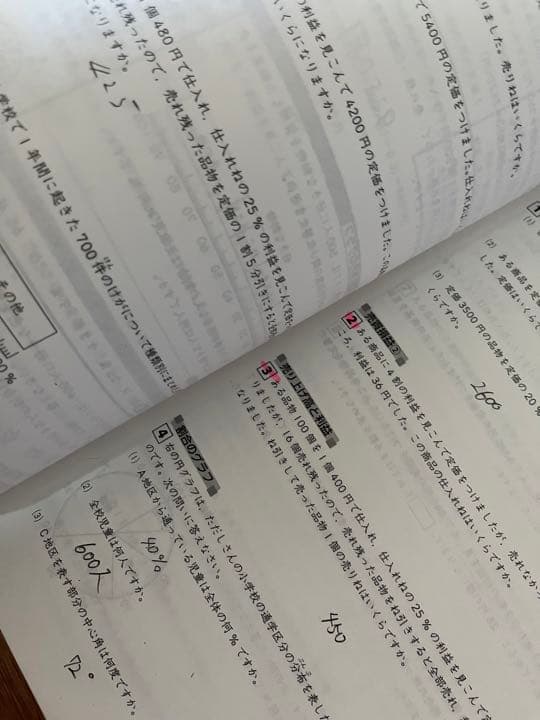 りました。売りねはいくらですか。
て5400円の定価をつけました。仕入れね
の利益を見こんで4200円の定価をつけました。この
いくらになりますか。
個480円で仕入れ，仕入れねの25％の利益を見こんで定価
れ残ったので，売れ残った品物を定価の1割5分引きにすると
になりますか。
425
学校で1年間に起きた700件のけがについて種類別にまとめ
その他
％
(2) ある商品を定
した。定価はいく
(3) 定価3500円の品物を定価の20％
くらですか。
2600
売買損益②
2 ある商品に4割の利益を見こんで定価をつけましたが，売れなかっ
ころ，利益は36円でした。この商品の仕入れねはいくらですか。
売り上げ高と利益
3 ある品物100個を1個400円で仕入れ，仕入れねの25％の利益を見こんで
りましたが，16個売れ残ったので，売れ残った品物をね引きすると全部売れ，
なりました。ね引きして売った品物1個の売りねはいくらですか。
450
割合のグラフ
4 右の円グラフは，たたしさんの小学校の通学区分の分布を表した
のです。次の問いに答えなさい。
(1) A地区から通っている児童は全体の何％ですか。
40％
(2) 全校児童は何人ですか。
600人
(3) C地区を表す部分の中心角は何度ですか。
72°